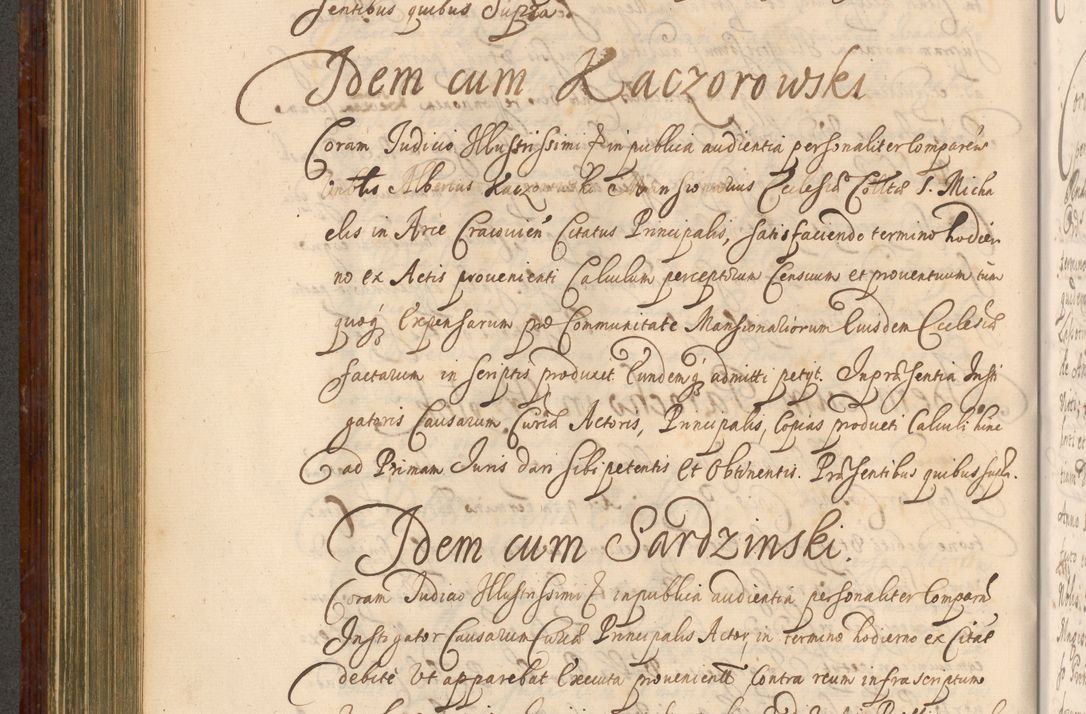 sentibus quibus Supra.
Idem cum Kaczorowski
Coram Judicio Illustrissimi & in publica audientia personaliter Comparens
Albertus Kaczorowski Mansionarius Ecclesiæ Colltæ S. Micha
elis in Arce Cracovień Citatus Principalis, satisfaciendo termino hodier
no ex Actis provenienti Calculum perceptorum Censuum et proventuum tum
quoq Expensarum pro Communitate Mansionaliorum Eiusdem Ecclesiæ
factarum in scriptis produxit Eundemq admitti petyt. In præsentia Insti
gatoris Causarum Curiæ Actoris, Principalis, Copias producti Calculi hinc
ad Primam Juris dari sibi petentis Et Obtinentis. Præsentibus quibus supra.
Idem cum Sardzinski.
Coram Judicio Illustrissimi & in publica audientia personaliter Comparens
Instigator Causarum Curiæ Principalis Actor, in termino hodierno ex Citãe
debite Ut apparebat Executa provenientẽ Contra reum infrascriptum